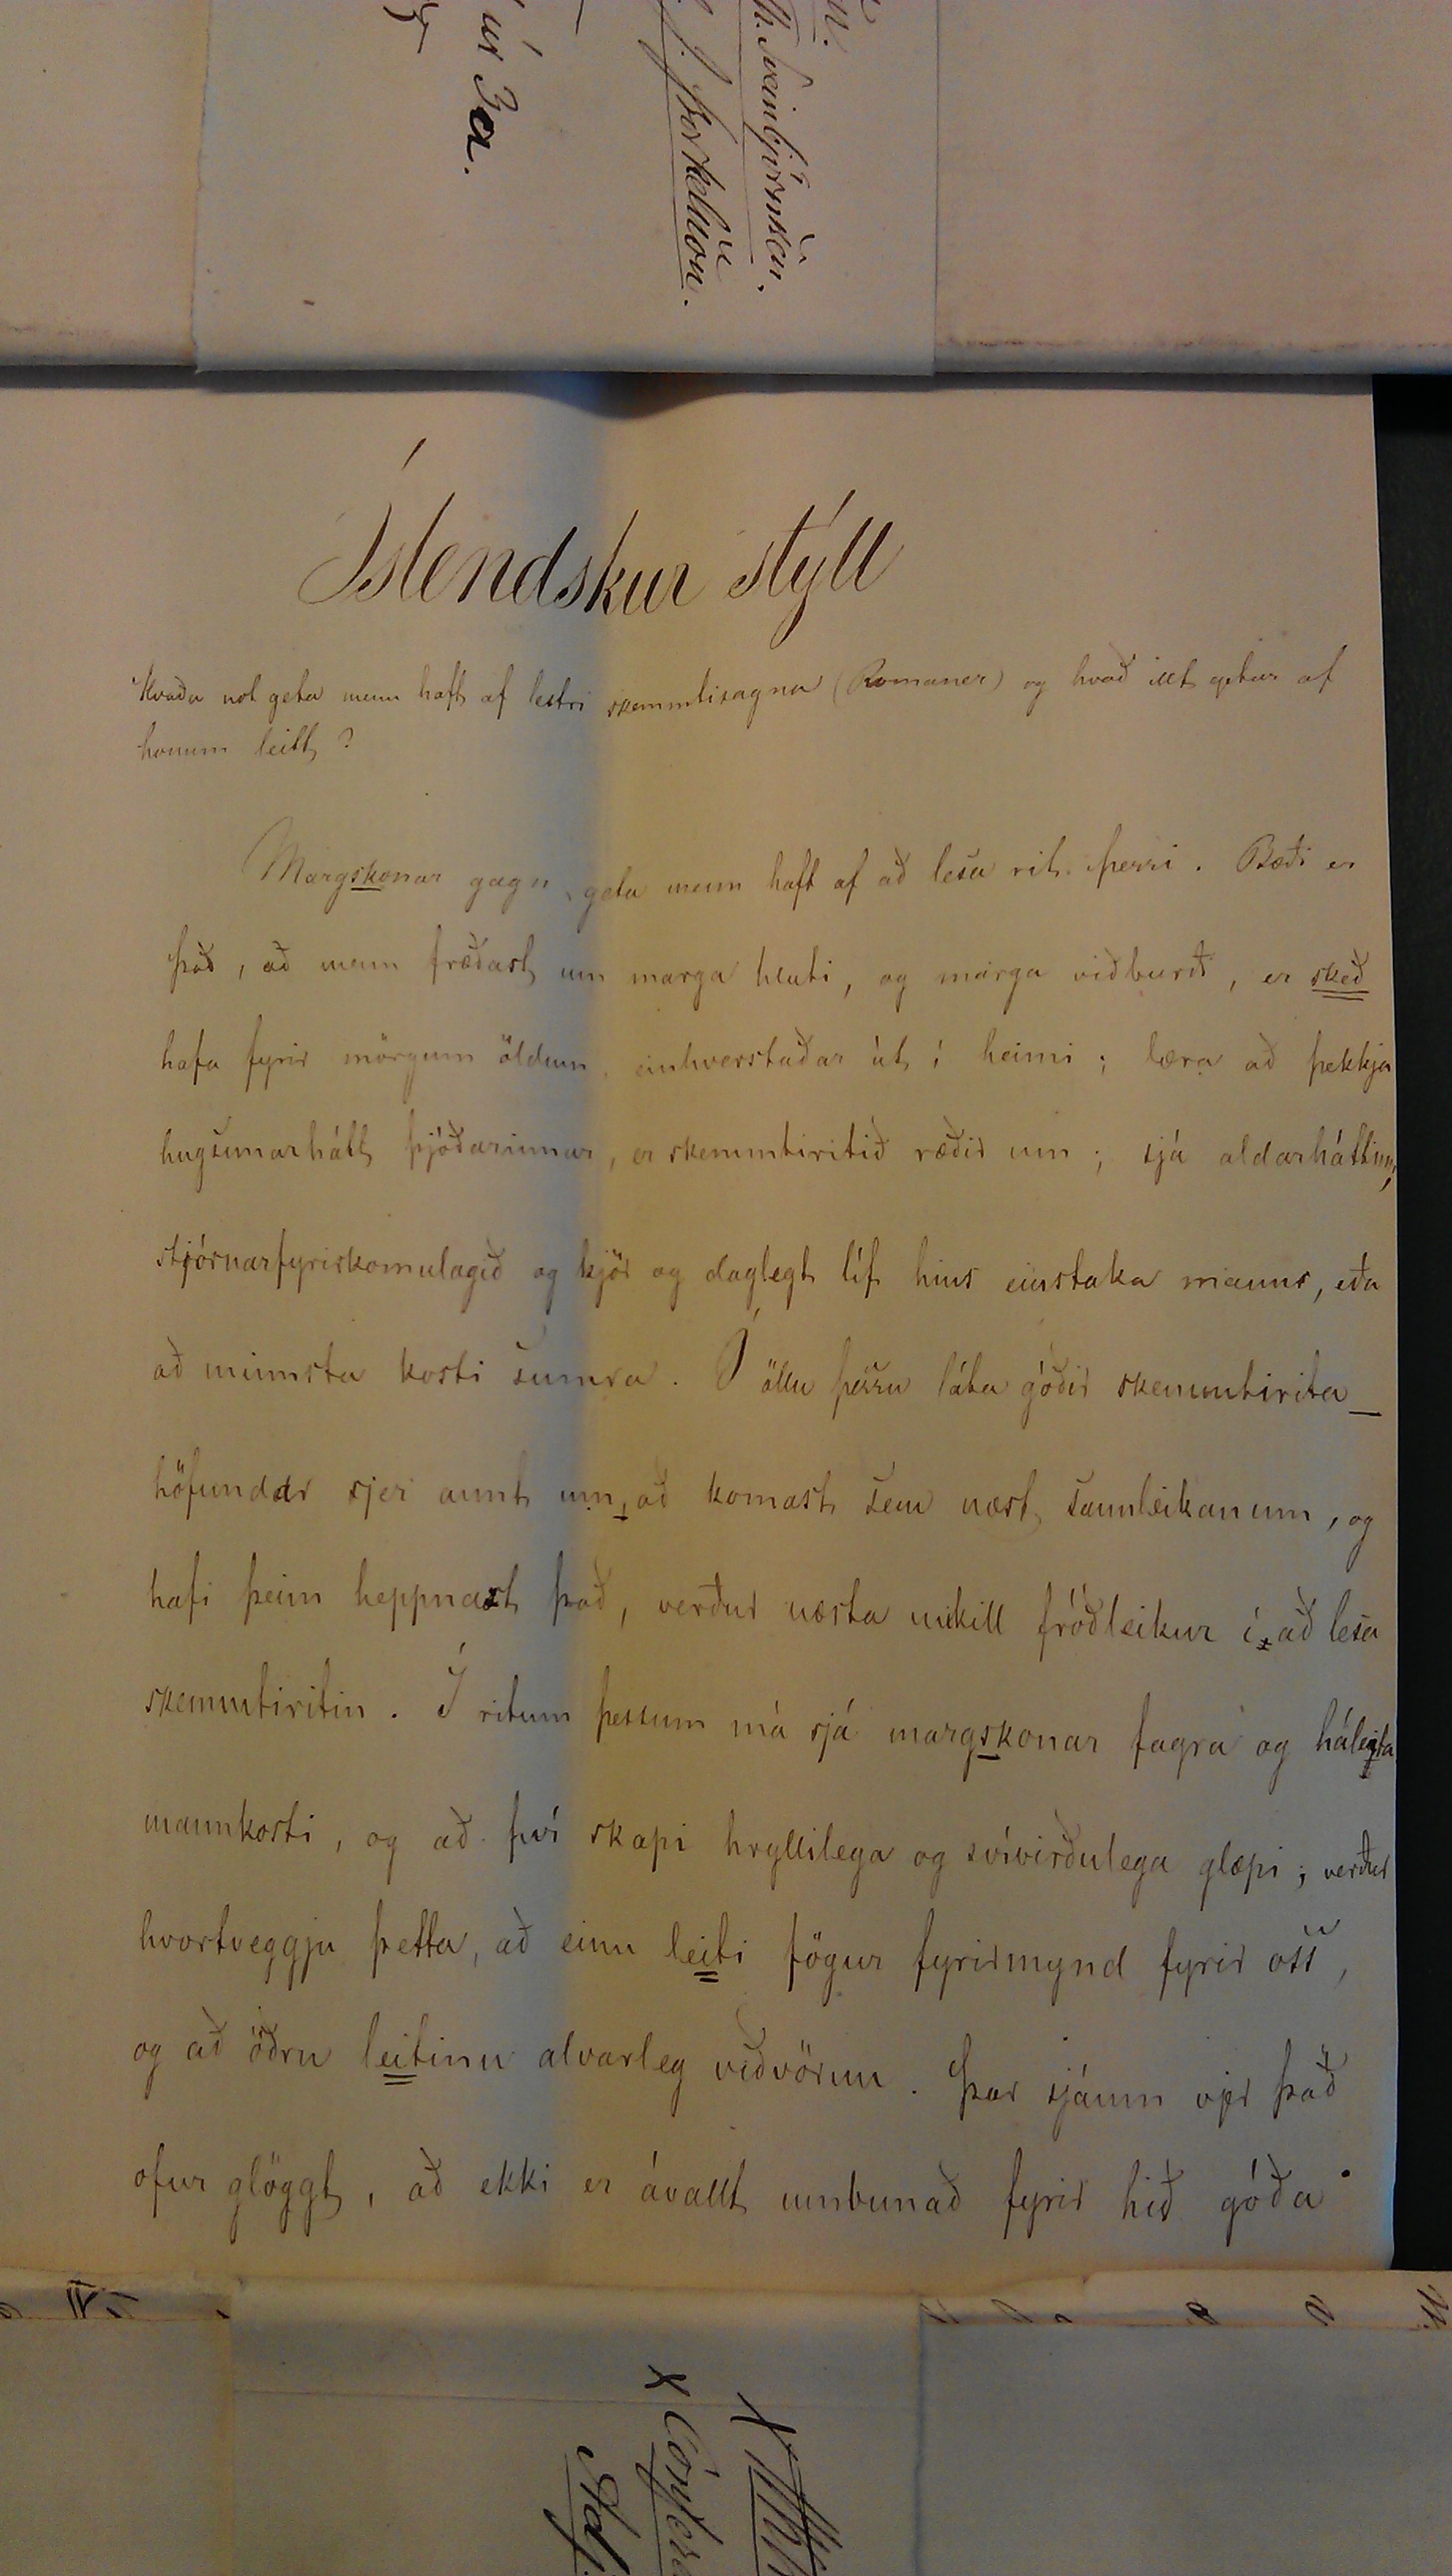 úr 3a.
Th. Sveinbjörnsson.
J. Þorkelsson.
Íslendskur stýll
Hvaða not geta menn haft af lestri skemmtisagna (Romaner) og hvað illt getur af
honum leitt?
Margskonar gagn geta menn haft af að lesa rit þessi. Bæði er
það, að menn fræðast um marga hluti, og marga viðburði, er skeð
hafa fyrir mörgum öldum einhverstaðar út í heimi; læra að þekkja
hugsunarhátt þjóðarinnar, er skemmtiritið ræðir um; sjá aldarháttinn,
stjórnarfyrirkomulagið og kjör og daglegt líf hins einstaka manns, eða
að minnsta kosti sumra. Í öllu þessu láta góðir skemmtirita_
höfundar sjer annt um, að komast sem næst sannleikanum, og
hafi þeim heppnast það, verður næsta mikill fróðleikur í, að lesa
skemmtiritin. Í ritum þessum má sjá margskonar fagra og háleita
mannkosti, og að því skapi hryllilega og svívirðulega glæpi; verður
hvortveggju þetta, að einu leiti fögur fyrirmynd fyrir oss,
og að öðru leitinu alvarleg viðvörun. Þar sjáum vjer það
ofur glöggt, að ekki er ávallt umbunað fyrir hið góða